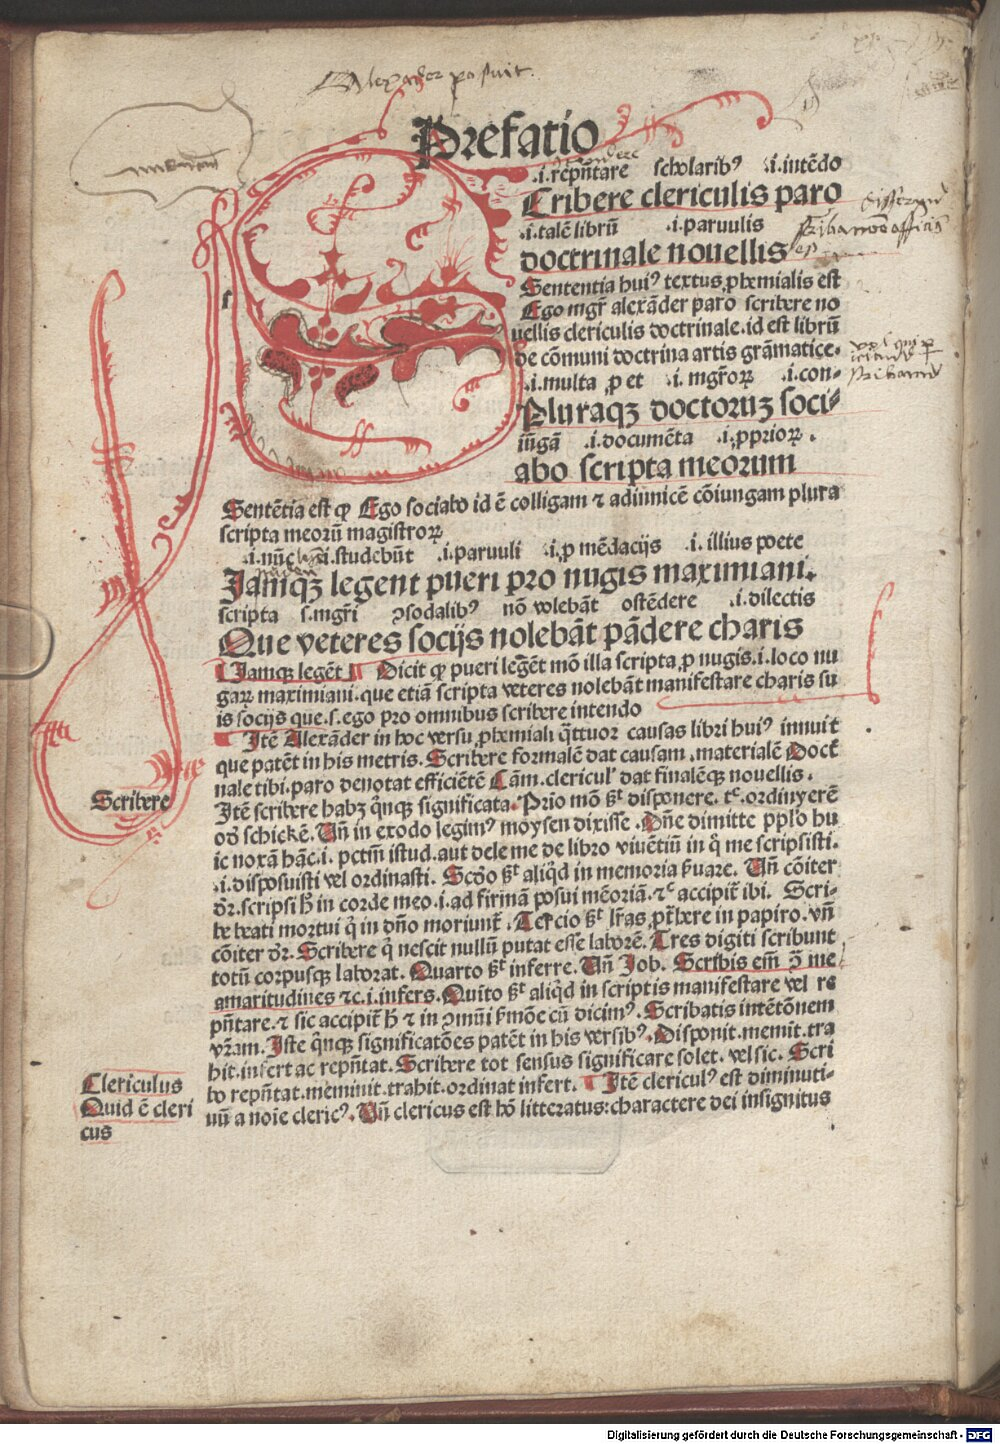 Alexander posuit.
Prefatio
.i. rep̄ñtare scholarib⁹ .i. intēdo
Scribere clericulis paro
.i. talē librū .i. paruulis
doctrinale nouellis
Sententia hui⁹ textus ꝓhemialis est
Ego mgr̄ alexāder paro scribere no
uellis clericulis doctrinale .id est librū
de cōmuni doctrina artis grāmatice.
.i. multa ꝓ et .i. mgr̄oꝝ .i. con-
Pluraqꝫ doctoruꝫ soci-
iūgā .i. documēta .i. ꝓprioꝝ .
abo scripta meorum
Sentētia est ꝙ Ego sociabo id ē colligam ⁊ adiunicē cōiungam plura
scripta meorū magistroꝝ
.i. nūc .i. studebūt .i. paruuli .i. ꝓ mēdacijs .i. illius poete
Jamqꝫ legent pueri pro nugis maximiani.
scripta s. mgr̄i ꝯsodalib⁹ nō volebāt ostēdere .i. dilectis
Que veteres socijs nolebāt pādere charis
Jamqꝫ legēt Dicit ꝙ pueri legēt mō illa scripta ꝓ nugis .i. loco nu
gaꝝ maximiani. que etiā scripta veteres nolebāt manifestare charis su
is socijs que .s. ego pro omnibus scribere intendo
Itē Alexāder in hoc versu ꝓhemiali q̄ttuor causas libri hui⁹ innuit
que patēt in his metris. Scribere formalē dat causam, materialē Doct
nale tibi. paro denotat efficiētē Cām. clericul⁹ dat finalēqꝫ nouellis.
Itē scribere habꝫ q̄nqꝫ significata. Prīo mō sꝫᵗ disponere. tᶜ. ordinyerē
oď schickē. Vñ in exodo legim⁹ moysen dixisse. Dñe dimitte pplō hu
ic noxā hāc .i. pctm̄ istud. aut dele me de libro viuētiū in q̄ me scripsisti.
.i. disposuisti vel ordinasti. Scďo sꝫᵗ aliqď in memoria ẜuare. Vñ cōiter
ďr. scripsi h̄ in corde meo .i. ad firmā posui mēoriā. ⁊ᶜ accipit̄ ibi. Scri-
be beati mortui q̄ in dño moriunt̄. Tercio sꝫᵗ lr̄as ꝓt̄here in papiro. vñ
cōiter ďr. Scribere q̄ nescit nullū putat esse laborē. Tres digiti scribunt
totū corpusqꝫ laborat. Quarto sꝫᵗ inferre. Vñ Job. Scribis em̄ ꝯ̄ me
amaritudines ⁊c. i. infers. Quīto sꝫᵗ aliqď in scriptis manifestare vel re
pñtare. ⁊ sic accipit̄ h̄ ⁊ in ꝯmūi ẜmōe cū dicim⁹. Scribatis intētōnem
vr̄am. Iste q̄nqꝫ significatōes patēt in his versib⁹. Disponit. memīt. tra
hit. infert ac repñtat. Scribere tot sensus significare solet. vel sic. Scri
bo repñtat. meminit. trahit. ordinat infert. Itē clericul⁹ est diminuti-
uū a noīe cleric⁹. Vñ clericus est hō litteratus: charactere dei insignitus
Scribere
Clericulus
Quid ē cleri
cus
Digitalisierung gefördert durch die Deutsche Forschungsgemeinschaft - DFG